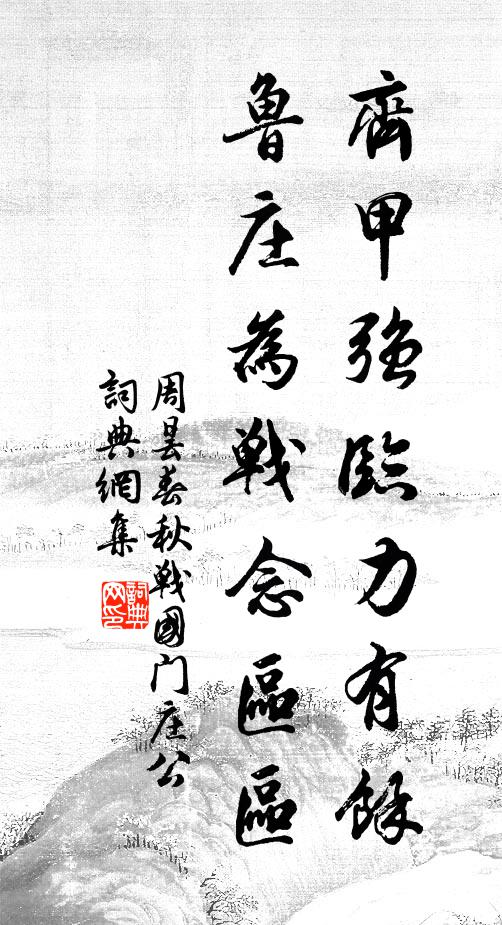 齊甲強臨力有餘
魯庄為戰念區區
周昙春秋戰國门庄公
詞典網集
詞典网印